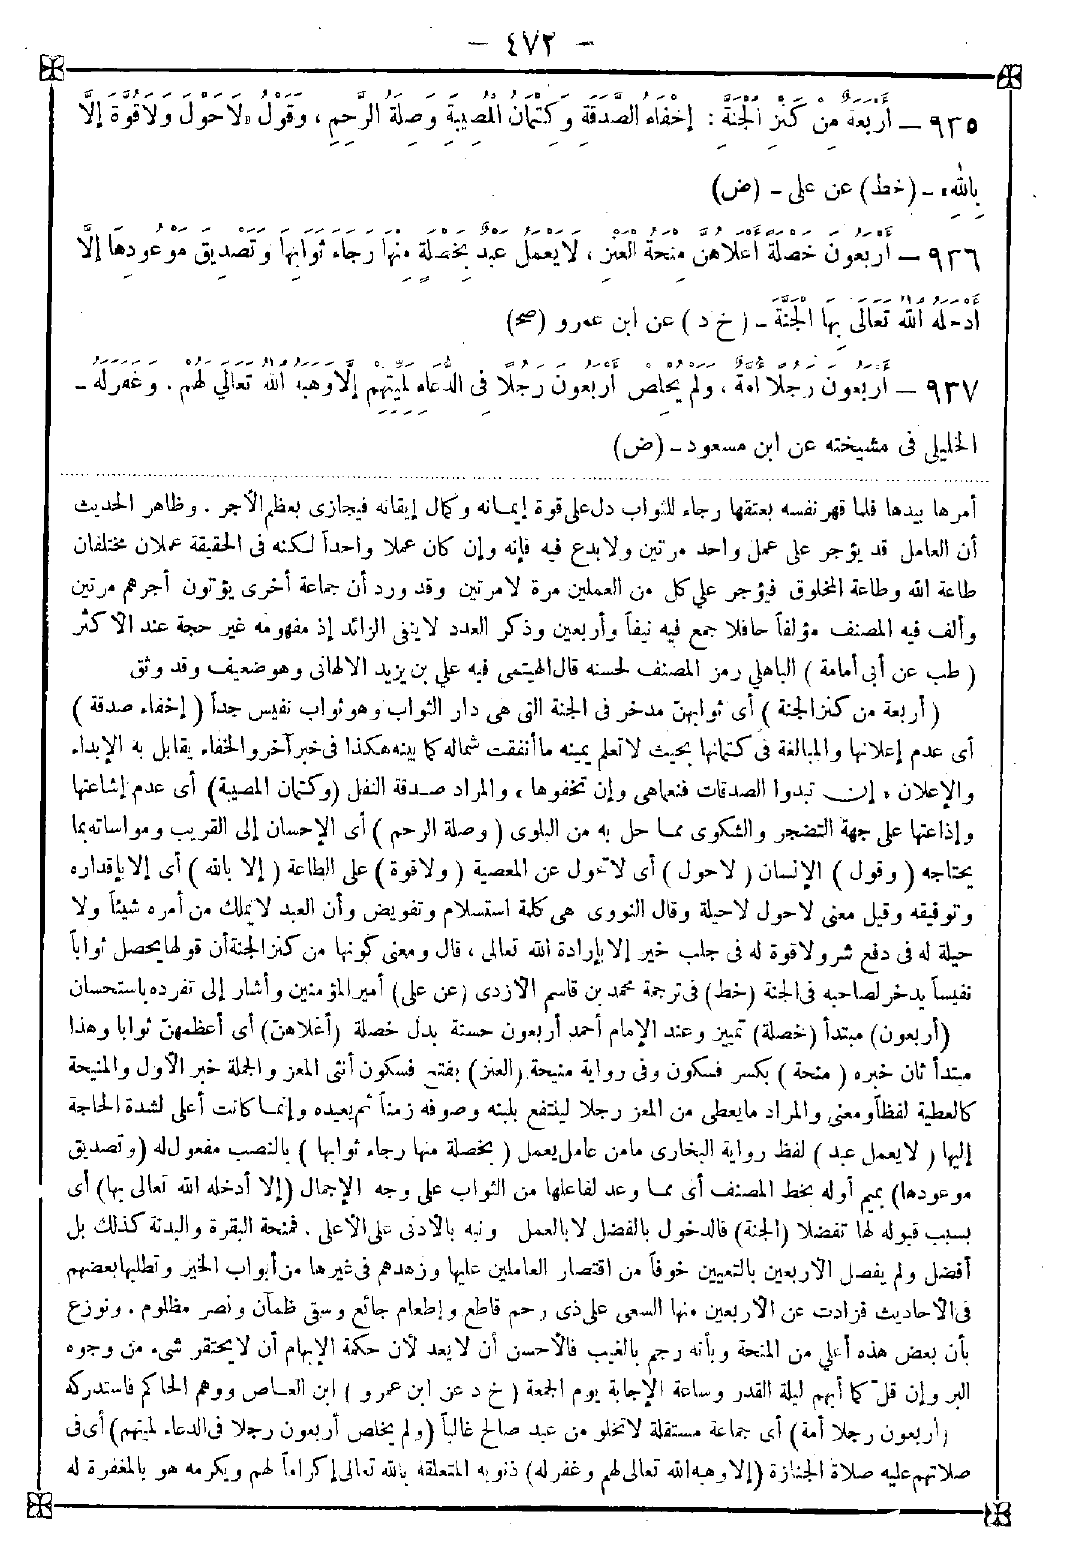 - ٤٧٢ -
٩٣٥ - أَرْبَعَةٌ مِنْ كَنْزِ الْجَنَّةِ : إخْفَاءُ الصَّدَقَةِ وَكِتْمَانُ الْمُصِيبَةِ وَصِلَةُ الرَّحِمِ ، وَقَوْلُ «لَا حَوْلَ وَلَا قُوَّةَ إلَّا
بِاللّٰهِ» - (خط) عن على - (ض)
٩٣٦ - أَرْبَعُونَ خَصْلَةً أَعْلَاهُنَّ مِنْحَةُ الْعَنْزِ ، لَا يَعْمَلُ عَبْدٌ بِخَصْلَةٍ مِنْهَا رَجَاءَ ثَوَابِهَا وَتَصْدِيقَ مَوْعُودِهَا إلَّا
أَدْخَلَهُ اللّٰهُ تَعَالَى بِهَا الْجَنَّةَ - ( خ د ) عن ابن عمرو (صح)
٩٣٧ - أَرْبَعُونَ رَجُلًا أُمَّةٌ ، وَلَمْ يُخْلِصْ أَرْبَعُونَ رَجُلًا فِى الدُّعَاءِ لِمَيِّتِهِمْ إلَّا وَهَبَهُ اللّٰهُ تَعَالَى لَهُمْ . وَغَفَرَ لَهُ -
الخليلى فى مشيخته عن ابن مسعود - (ض)
أمرها بيدها فلما قهر نفسه بعتقها رجاء للثواب دل على قوة إيمانه وكمال إيقانه فيجازى بعظم الأجر . وظاهر الحديث
أن العامل قد يؤجر على عمل واحد مرتين ولابدع فيه فإنه وإن كان عملا واحداً لكنه فى الحقيقة عملان مختلفان
طاعة الله وطاعة المخلوق فيؤجر على كل من العملين مرة لامرتين وقد ورد أن جماعة أخرى يؤتون أجرهم مرتين
وألف فيه المصنف مؤلفاً حافلا جمع فيه نيفاً وأربعين وذكر العدد لاينفى الزائد إذ مفهومه غير حجة عند الأكثر
( طب عن أبى أمامة ) الباهلى رمز المصنف لحسنه قال الهيتمى فيه على بن يزيد الالهانى وهو ضعيف وقد وثق
( أربعة من كنز الجنة ) أى ثوابهن مدخر فى الجنة التى هى دار الثواب وهو ثواب نفيس جداً ( إخفاء صدقة )
أى عدم إعلانها والمبالغة فى كتمانها بحيث لا تعلم يمينه ما أنفقت شماله كما بينه هكذا فى خبر آخر والخفاء يقابل به الإبداء
والإعلان «إن تبدوا الصدقات فنعما هى وإن تخفوها» والمراد صدقة النفل (وكتمان المصيبة) أى عدم إشاعتها
وإذاعتها على جهة التضجر والشكوى مما حل به من البلوى ( وصلة الرحم ) أى الإحسان إلى القريب ومواساته بما
يحتاجه ( وقول ) الإنسان ( لاحول ) أى لاتحول عن المعصية ( ولاقوة ) على الطاعة ( إلا بالله ) أى إلا بإقداره
وتوفيقه وقيل معنى لاحول لاحيلة وقال النووى هى كلمة استسلام وتفويض وأن العبد لايملك من أمره شيئاً ولا
حيلة له فى دفع شر ولاقوة له فى جلب خير إلا بإرادة الله تعالى ، قال ومعنى كونها من كنز الجنة أن قولها يحصل ثواباً
نفيساً يدخر لصاحبه فى الجنة (خط) فى ترجمة محمد بن قاسم الأزدى (عن على) أمير المؤمنين وأشار إلى تفرده باستحسان
(أربعون) مبتدأ (خصلة) تمييز وعند الإمام أحمد أربعون حسنة بدل خصلة (أعلاهن) أى أعظمهن ثوابا وهذا
مبتدأ ثان خبره ( منحة ) بكسر فسكون وفى رواية منيحة (العنز) بفتح فسكون أنثى المعز والجملة خبر الأول والمنيحة
كالعطية لفظاً ومعنى والمراد مايعطى من المعز رجلا لينتفع بلبنه وصوفه زمناً ثم يعيده وإنما كانت أعلى لشدة الحاجة
إليها ( لايعمل عبد ) لفظ رواية البخارى مامن عامل يعمل ( بخصلة منها رجاء ثوابها ) بالنصب مفعول له (وتصديق
موعودها) بميم أوله بخط المصنف أى مما وعد لفاعلها من الثواب على وجه الإجمال (إلا أدخله الله تعالى بها) أى
بسبب قبوله لها تفضلا (الجنة) فالدخول بالفضل لابالعمل ونبه بالأدنى على الأعلى . فمنحة البقرة والبدنة كذلك بل
أفضل ولم يفصل الأربعين بالتعيين خوفاً من اقتصار العاملين عليها وزهدهم فى غيرها من أبواب الخير وتطلبها بعضهم
فى الأحاديث فزادت عن الأربعين منها السعى على ذى رحم قاطع وإطعام جائع وسقى ظمآن ونصر مظلوم . ونوزع
بأن بعض هذه أعلى من المنحة وبأنه رجم بالغيب فالأحسن أن لايعد لأن حكمة الإبهام أن لايحتقر شىء من وجوه
البر وإن قل كما أبهم ليلة القدر وساعة الإجابة يوم الجمعة ( خ د عن ابن عمرو ) ابن العاص ووهم الحاكم فاستدركه
(أربعون رجلا أمة) أى جماعة مستقلة لاتخلو من عبد صالح غالباً (ولم يخلص أربعون رجلا فى الدعاء لميتهم) أى فى
صلاتهم عليه صلاة الجنازة (إلا وهبه الله تعالى لهم وغفر له) ذنوبه المتعلقة بالله تعالى إكراماً لهم ويكرمه هو بالمغفرة له